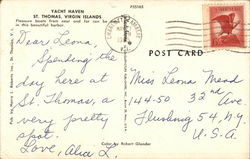 YACHT HAVEN
ST. THOMAS, VIRGIN ISLANDS
Pleasure boats from near and far can be seen
in this beautiful harbor.
P35165
POST CARD
Dear Leona,
Spending the
day here at
St. Thomas, a
very pretty
spot.
Love,
Miss Leona Mead
144-50 32nd Ave
Flushing 54, N.Y.
U.S.A.
Color by Robert Glander